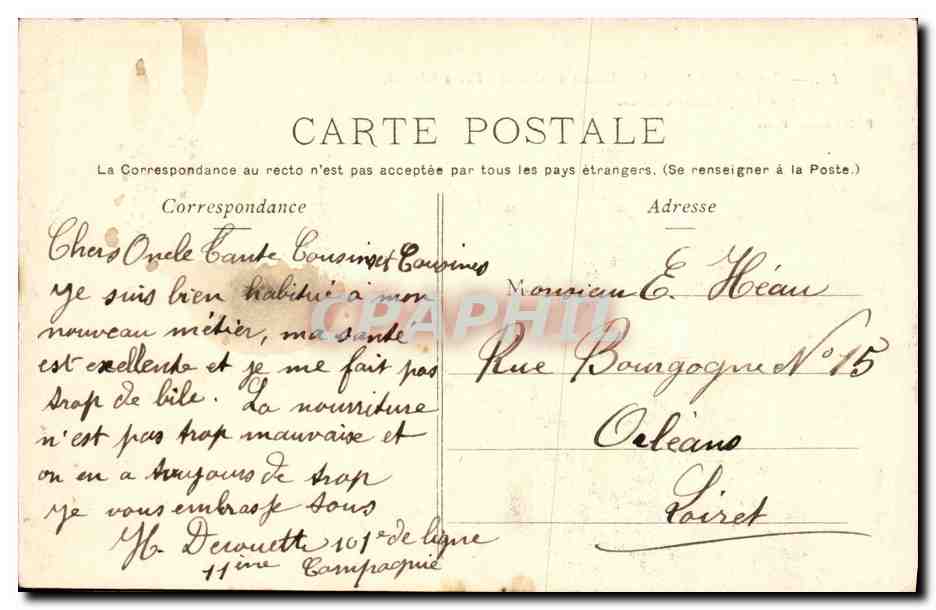 CARTE POSTALE
La Correspondance au recto n'est pas acceptée par tous les pays étrangers. (Se renseigner à la Poste.)
Correspondance
Chers Oncle Tante Cousins et Cousines
Je suis bien habitué à mon
nouveau métier, ma santé
est excellente et je me fait pas
trop de bile. La nourriture
n'est pas trop mauvaise et
on en a toujours de trop
Je vous embrasse tous
H. Derouette 101e de ligne
11ème Compagnie
Adresse
Monsieur E. Héau
Rue Bourgogne No 15
Orléans
Loiret
CPAPHIL